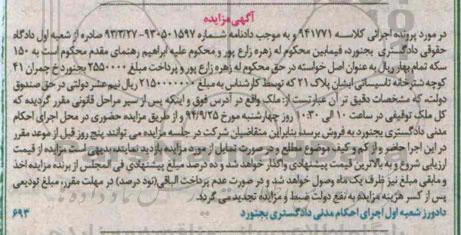 آگهی مزایده
در مورد پرونده اجرائی کلاسه ۹۴۱۷۷۱ و به موجب دادنامه شماره ۹۳۰۵۰۱۵۹۷-۹۳/۳/۲۷ صادره از شعبه اول دادگاه
حقوقی دادگستری بجنورد، فیمابین محکوم له زهره زارع پور و محکوم علیه ابراهیم رهنمای مقدم محکوم است به ۱۵۰
سکه تمام بهار ریال به عنوان اصل خواسته در حق محکوم له زهره زارع پور و پرداخت مبلغ ۲۵۵۰۰۰۰ بجنورد خ جمران ۴۱
کوچه شترخانه تاسیساتی ایشان پلاک ۲۱ که توسط کارشناس به مبلغ ۲۱۵۰۰۰۰۰۰۰ ریال نیم عشر دولتی در حق صندوق
دولت، که مشخصات دقیق تر آن عبارتست از: ملک واقع در آدرس فوق و اینکه پس از سیر مراحل قانونی مقرر گردیده که
کل ملک توقیفی در ساعت ۱۰ الی ۱۰:۳۰ روز چهارشنبه مورخ ۹۴/۹/۲۵ و از طریق مزایده حضوری در محل اجرای احکام
مدنی دادگستری بجنورد به فروش برسد، بنابراین متقاضیان شرکت در جلسه مزایده می توانند پنج روز قبل از موعد مقرر
در این اجرا حاضر و از کم و کیف موضوع مطلع و در صورت تمایل از مورد مزایده بازدید نمایند، بدیهی است مزایده از قیمت
ارزیابی شروع و به بالاترین قیمت پیشنهادی واگذار خواهد شد و ده درصد مبلغ پیشنهادی فی المجلس از برنده مزایده اخذ
و مابقی مبلغ نیز ظرف یک ماه وصول خواهد شد و در صورت عدم پرداخت الباقی (نود درصد) در مهلت مقرر، مبلغ تودیعی
پس از کسر هزینه مزایده به نفع دولت ضبط و مزایده تجدید می گردد.
دادورز شعبه اول اجرای احکام مدنی دادگستری بجنورد ۶۹۳